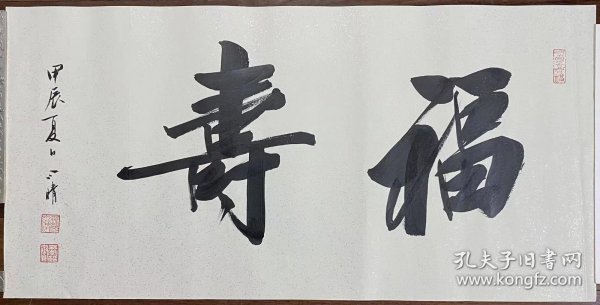 福壽
甲辰夏日
孔夫子旧书网
www.kongfz.com